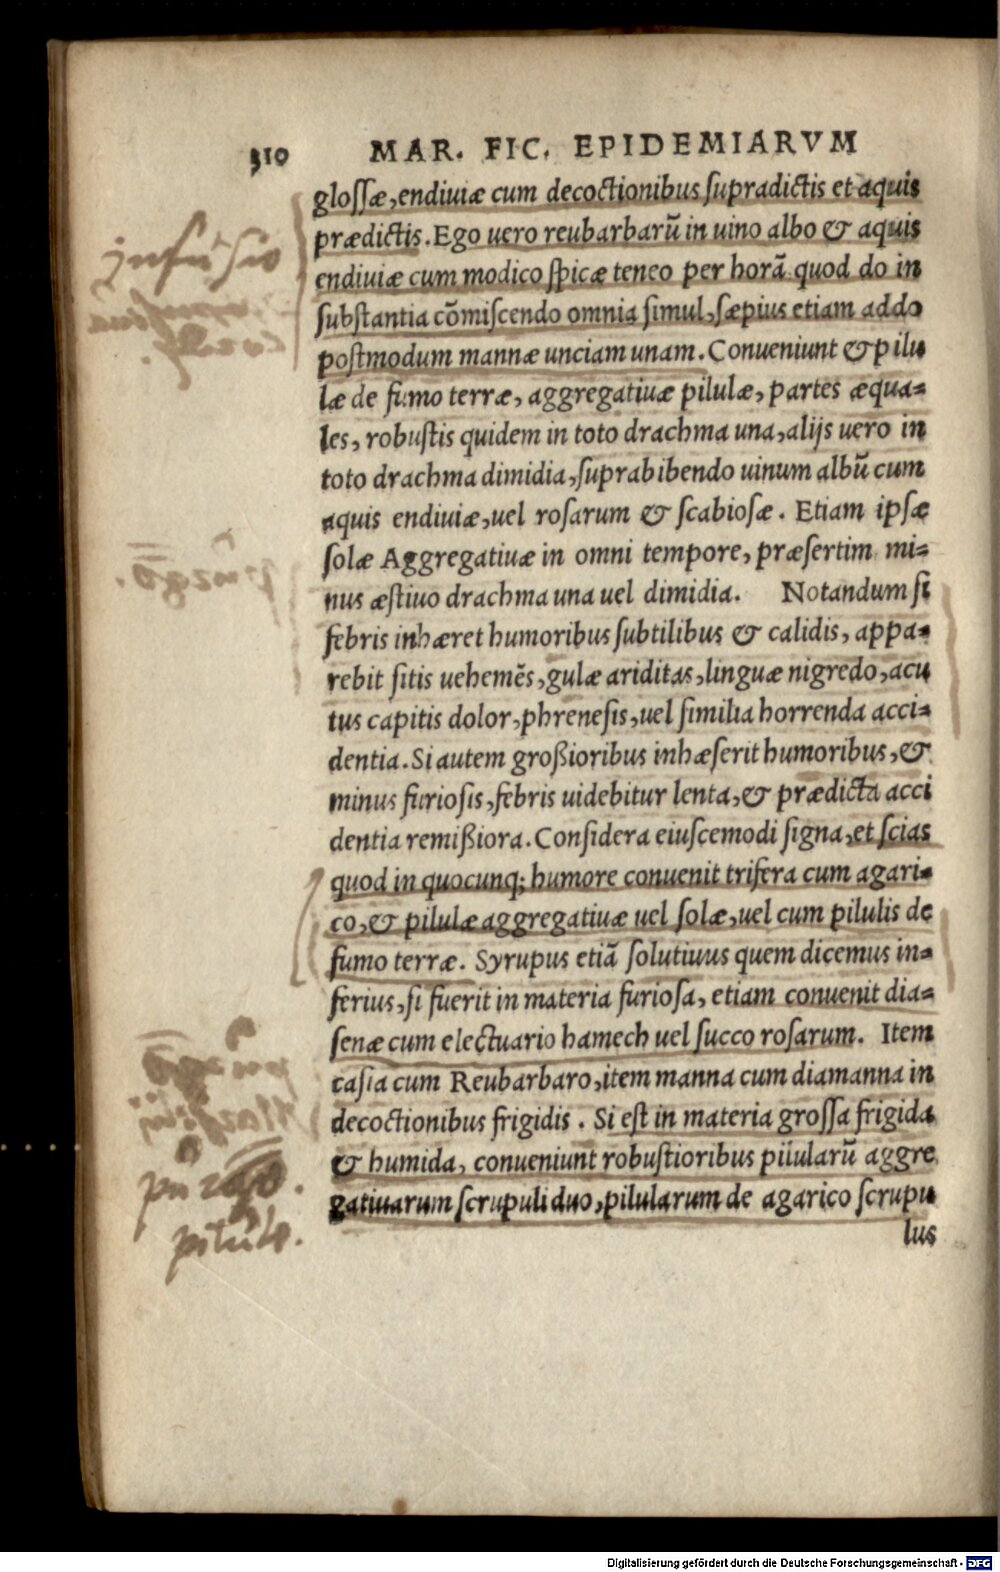 310 MAR. FIC. EPIDEMIARVM
glossæ, endiuiæ cum decoctionibus supradictis et aquis
prædictis. Ego uero reubarbarū in uino albo & aquis
endiuiæ cum modico spicæ teneo per horā quod do in
substantia cōmiscendo omnia simul, sæpius etiam addo
postmodum mannæ unciam unam. Conueniunt & pilu
læ de fumo terræ, aggregatiuæ pilulæ, partes æqua=
les, robustis quidem in toto drachma una, alijs uero in
toto drachma dimidia, suprabibendo uinum albū cum
aquis endiuiæ, uel rosarum & scabiosæ. Etiam ipsæ
solæ Aggregatiuæ in omni tempore, præsertim mi=
nus æstiuo drachma una uel dimidia. Notandum si
febris inhæret humoribus subtilibus & calidis, appa=
rebit sitis uehemēs, gulæ ariditas, linguæ nigredo, acu
tus capitis dolor, phrenesis, uel similia horrenda acci=
dentia. Si autem großioribus inhæserit humoribus, &
minus furiosis, febris uidebitur lenta, & prædicta acci
dentia remißiora. Considera eiuscemodi signa, et scias
quod in quocunq; humore conuenit trifera cum agari=
co, & pilulæ aggregatiuæ uel solæ, uel cum pilulis de
fumo terræ. Syrupus etiā solutiuus quem dicemus in=
ferius, si fuerit in materia furiosa, etiam conuenit dia=
senæ cum electuario hamech uel succo rosarum. Item
casia cum Reubarbaro, item manna cum diamanna in
decoctionibus frigidis. Si est in materia grossa frigida
& humida, conueniunt robustioribus pilularū aggre
gatiuarum scrupuli duo, pilularum de agarico scrupu
lus
infusio
purgo.
pituit.
Digitalisierung gefördert durch die Deutsche Forschungsgemeinschaft - DFG